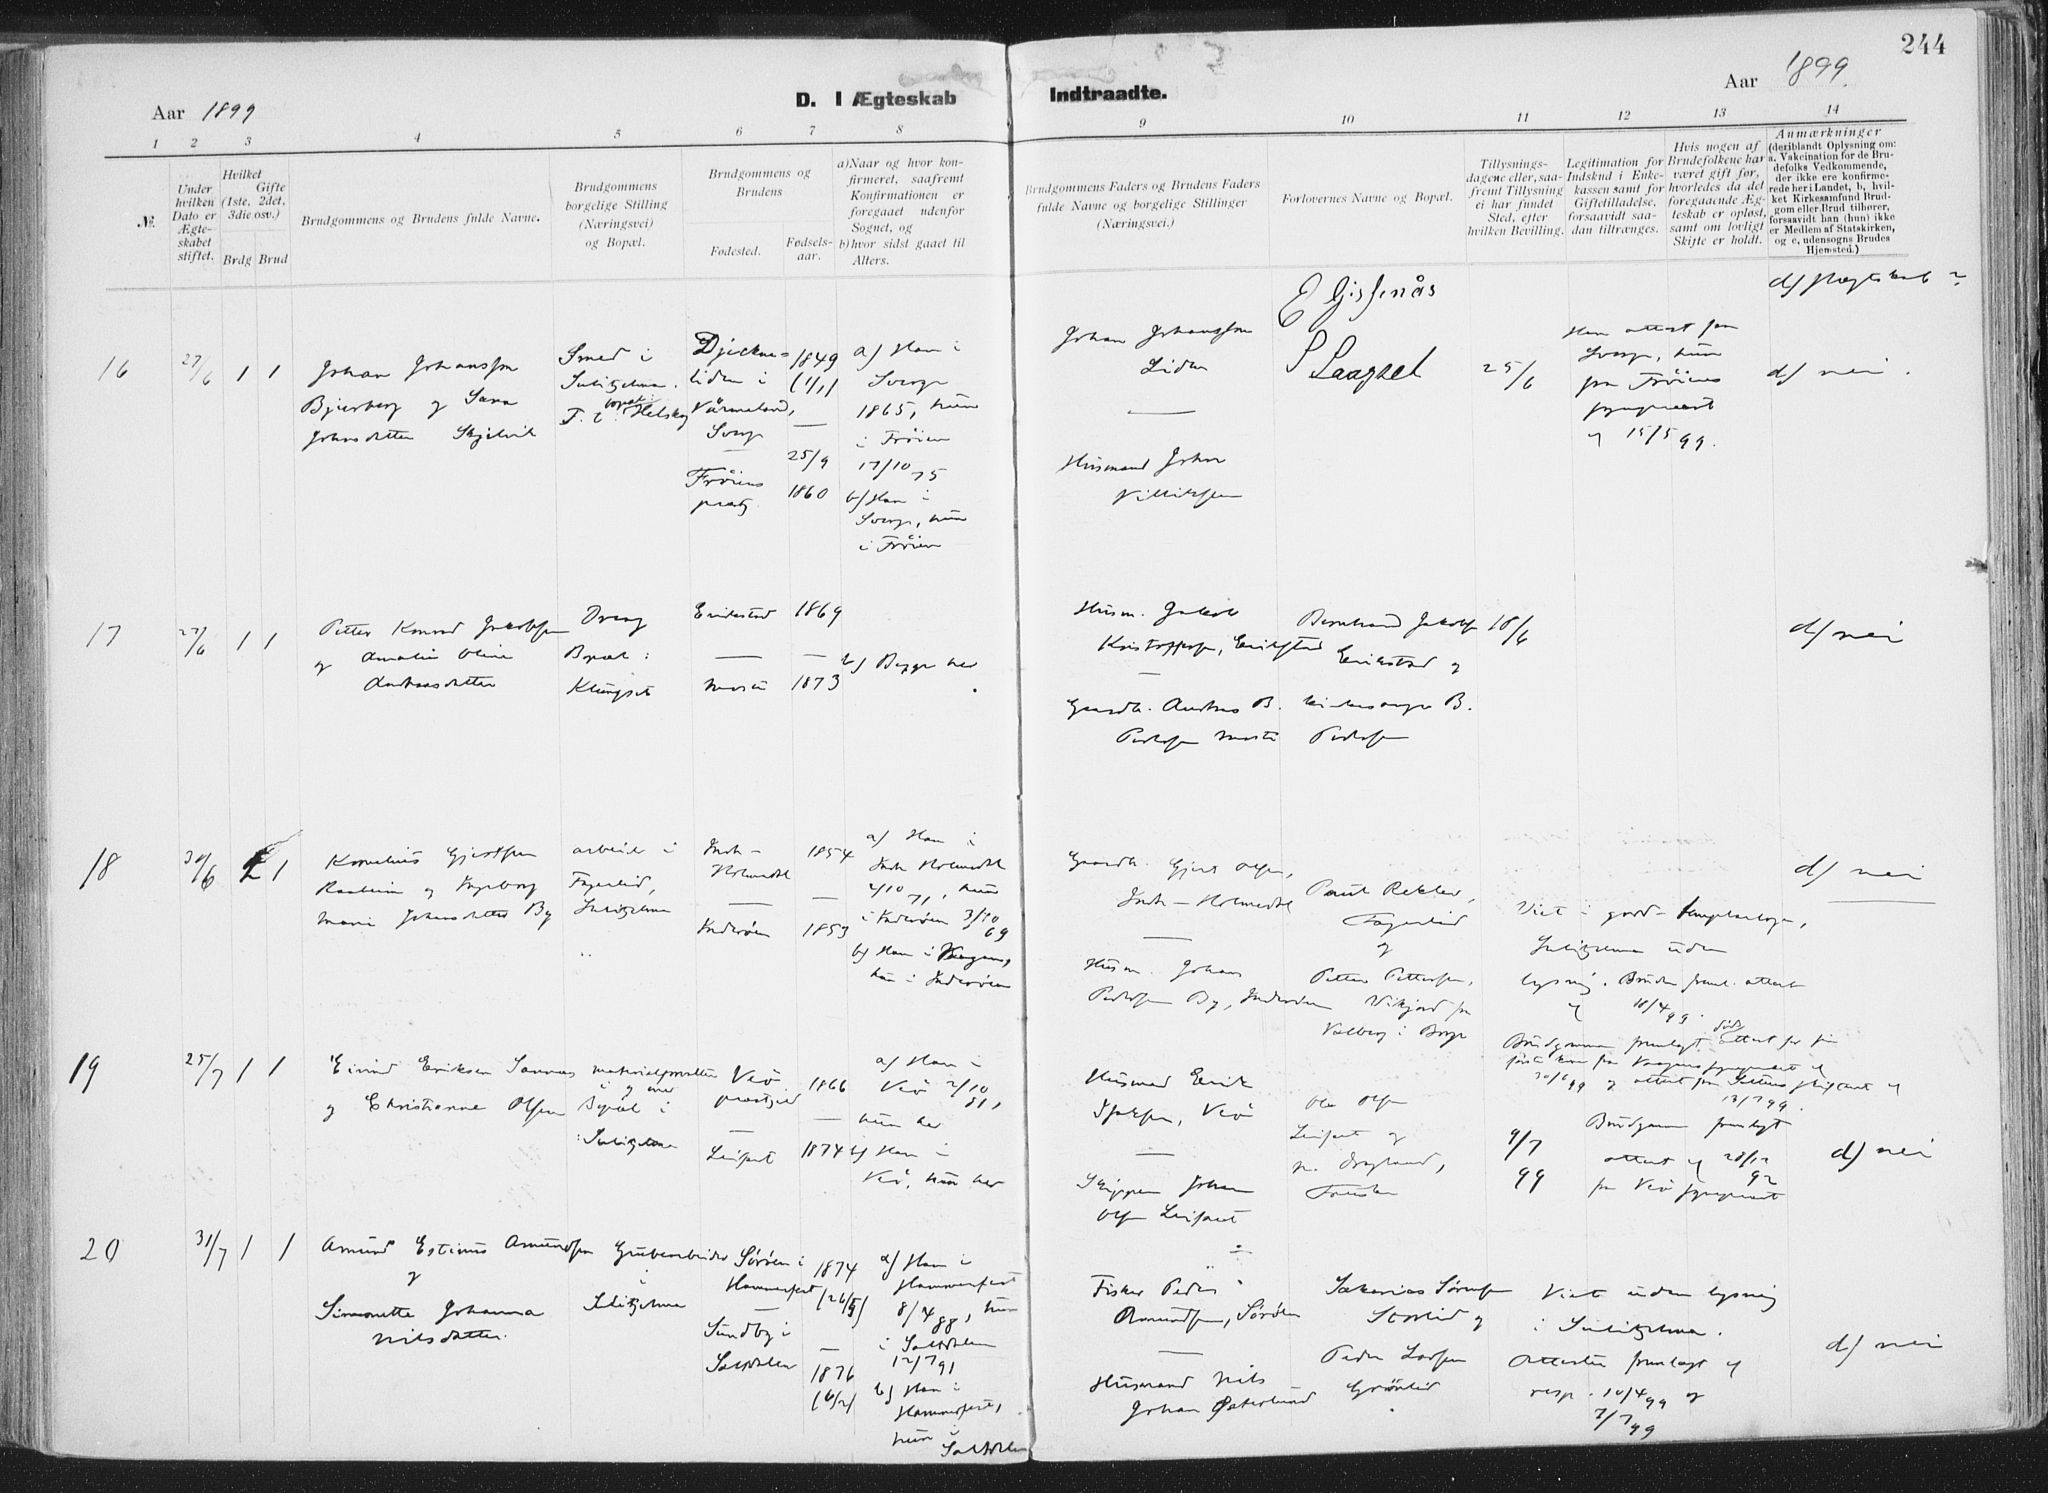 244
Aar 1899
D. I Ægteskab Indtraadte.
Aar 1899.
1 2 3 4 5 6 7 8 9 10 11 12 13 14
№.
Under hvilken Dato er Ægteskabet stiftet.
Hvilket Gifte (1ste, 2det, 3die osv.)
Brdg Brud
Brudgommens og Brudens fulde Navne.
Brudgommens borgelige Stilling (Næringsvei) og Bopæl.
Brudgommens og Brudens
Fødested.
Fødselsaar.
a) Naar og hvor konfirmeret, saafremt Konfirmationen er foregaaet udenfor Sognet, og
b) hvor sidst gaaet til Alters.
Brudgommens Faders og Brudens Faders fulde Navne og borgelige Stillinger (Næringsvei.)
Forlovernes Navne og Bopæl.
Tillysningsdagene eller, saafremt Tillysning ei har fundet Sted, efter hvilken Bevilling.
Legitimation for Indskud i Enkekassen samt for Giftetilladelse, forsaavidt saadan tiltrænges.
Hvis nogen af Brudefolkene har været gift før, hvorledes da det foregaaende Ægteskab er opløst, samt om lovligt Skifte er holdt.
Anmærkninger (deriblandt Oplysning om: a. Vakcination for de Brudefolks Vedkommende, der ikke ere konfirmerede her i Landet, b, hvilket Kirkesamfund Brudgom eller Brud tilhører, forsaavidt han (hun) ikke er Medlem af Statskirken, og c, udensogns Brudes Hjemsted.)
d) Slægtskab?
16 27/6 1 1
Johan Johansson
Bjerberg og Sara
Johnsdatter Skjelvik
Smed i
Sulitjelma.
bopæl:
Värmeland,
Sverge
Frøiens
prstg.
1849
(1/11)
25/9
1860
a) Han i
Sverge
1865, hun
i Frøien
17/10 75
b) Han i
Sverge, hun
i Frøien
Johan Johansson
Liden
Husmand Johan
E Gisfenås
25/6
Han attest fra
Sverge, hun
fra Frøiens
15/5 99.
d) nei.
17 27/6 1 1
Petter Konrad Jakobsen
og Amalie Oline
Andreasdatter
Dreng
Bopæl:
Klungset
Erikstad 1869
1873
b) Begge her
Husm. Jakob
Kristoffersen, Erikstad
Gaardb. Andreas B.
Pedersen
Bernhard Jakobsen
Erikstad og
kirkesanger B.
Pedersen
18/6
d) nei
18 30/6 2 1
Kornelius Gjertsen
Raaheim og Ingeborg
Marie Johansdatter By
arbeider i
Fagerlid,
Sulitjelma
Indr-
Holmedal
Inderøen
1854
1853
a) Han i
Indr Holmedal
2/10 71, hun
i Inderøen 3/10 69
b) Han i Vaagene,
hun i Inderøen
Gaardb. Gjert Olsen,
Indr-Holmedal
Husm. Johans
Pedersen By, Inderøen
Paul Rekler,
Fagerlid
og
Petter Pettersen,
Vikjord fra
Valberg i Borge
Viet i good-templarloge,
Sulitjelma uden
lysning. Bruden freml. attest
af 18/4 99.
Brudgommen fremlagt døds attest for sin
første kone fra Vaagens sogneprest af
20/6 99 og attest fra skifteret af
13/7 99.
d) nei
19 25/7 1 1
Eivind Eriksen Sannes
og Christianne Olsen
materialforvalter
i og med
Bopæl i
Sulitjelma
Veø
prestgjeld
Leifset
1866
1874
a) Han i
Veø 2/10 81,
hun her
b) Han i
Veø, hun her
Husmand Erik
Veø
Skipper Johan
Olsen Leifset
Ole Olsen
Leifset og
Fauske
9/7
99
Brudgom fremlagt
attest af 28/12 92
fra Veø sogneprest
d) nei
20 31/7 1 1
Amund Estinus Amundsen
og
Simonette Johanna
Nilsdatter.
Grubearbeider
i
Sulitjelma
Sørøen i
Hammerfest
Sundby i
Saltdalen
1874
(26/5)
1876
(6/2)
a) Han i
Hammerfest
8/4 88, hun
i Saltdalen
12/7 91
b) Han i
Hammerfest,
hun i
Saltdalen
Fisker Peder
Amundsen, Sørøen
Husmand Nils
Johan Østerlund
Sakarias Sørensen
Storlid og
Peder Larsen
Grønlid
Viet uden lysning
i Sulitjelma.
Attester fremlagt af
resp. 10/4 99 og
7/7 99
d) nei